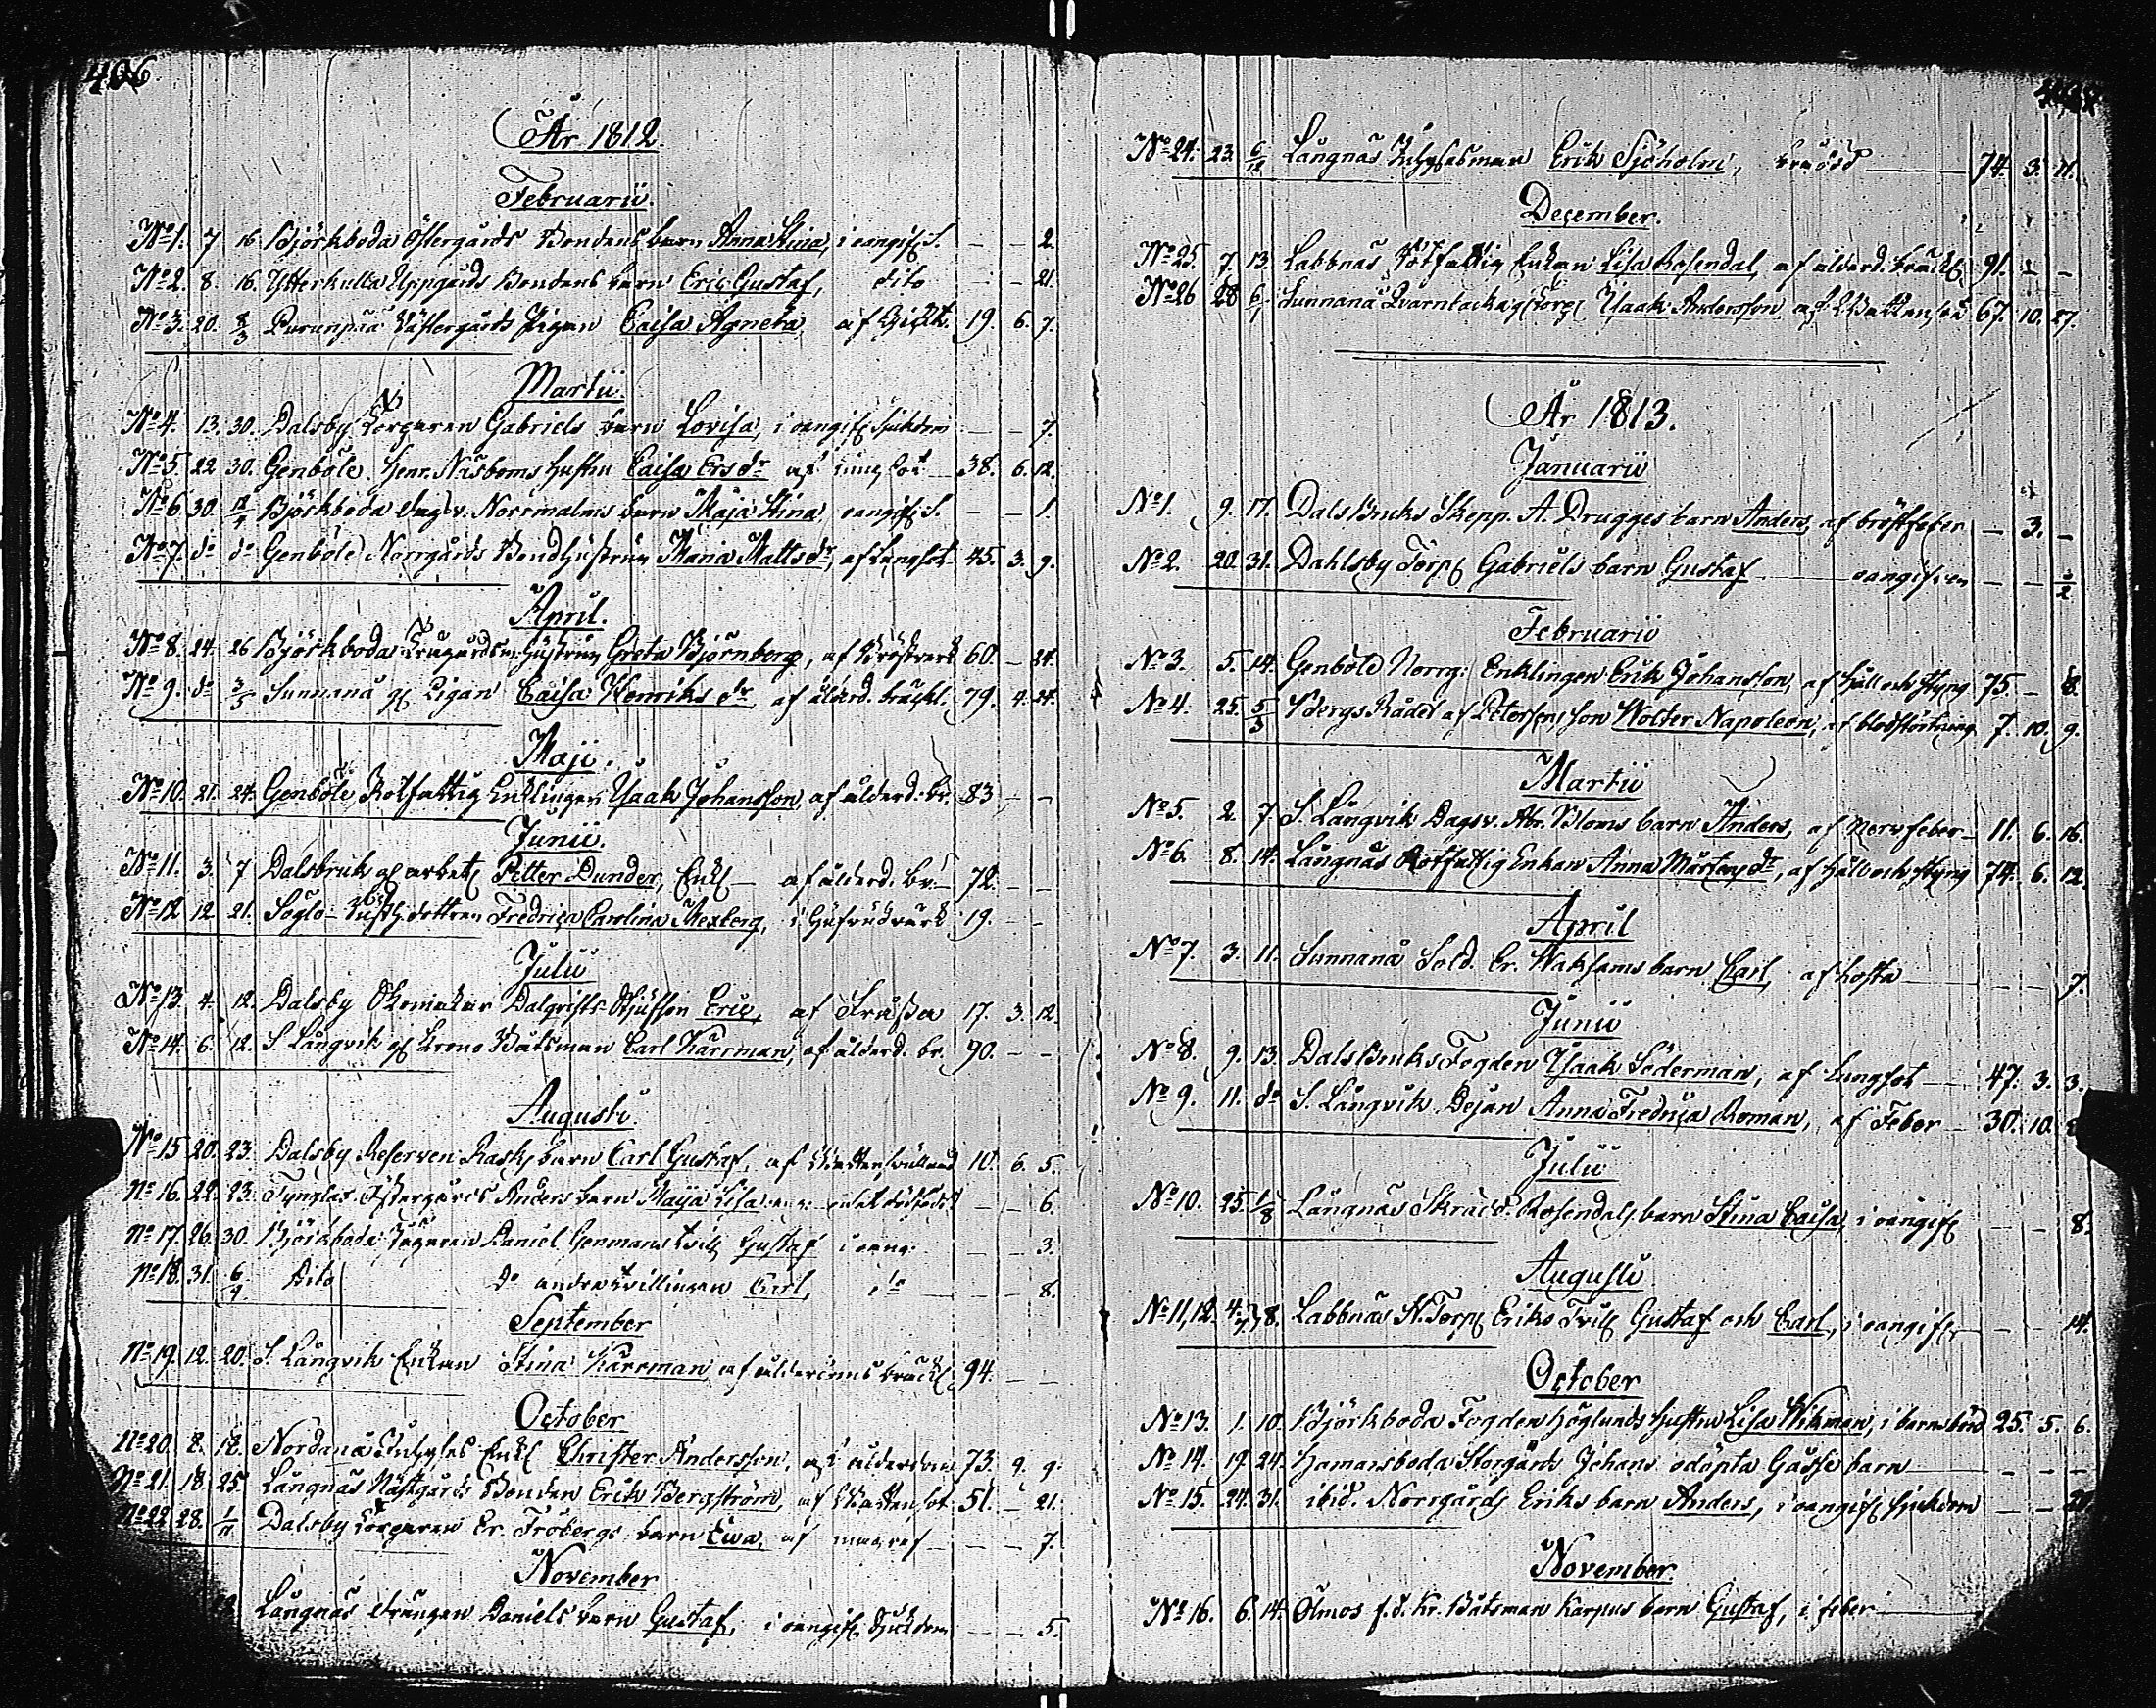 406
År 1812.
Februarii.
No 1. 7 16 Björkboda Östergårds Bondens barn Anna Stina, i oangif. S. – – 2.
No 2. 8. 16. Ytterkulla Uppgårds Bondens barn Eric Gustaf, dito – – 21.
No 3. 20. 8/3 Purunpää Västergårds Pigan Caisa Agneta, af Gickt. 19. 6. 7.
Martii.
No 4. 13. 30. Dalsby Torparen Gabriels barn Lovisa, i oangif. sjukdom – – 7.
No 5. 22 30. Genböle Henr. Näsboms hustru Caisa Ersdr af lungsot 38. 6. 12.
No 6 30 12/4 Björkboda Dagsv. Norrmalms barn Maja Stina, oangif. S. – – 1.
No 7. do do Genböle Norrgårds Bond hustrun Maria Mattsdr, af Lungsot 45. 3. 9.
April.
No 8. 24. 26 Björkboda hustrun Greta Björnborg, af Bröstverk 60. – 24.
No 9. do 3/5 Sunnanå gl Pigan Caisa Henriksdr af ålderd. bräckl. 79. 4. 24.
Maji.
No 10. 21. 24. Genböle Rotfattig Enklingen Isaak Johansson, af ålderd. br. 83 – –
Junii.
No 11. 3. 7 Dalsbruk gl arbet. Petter Dunder, Enkl. – af ålderd. br. – 72. – –
No 12 12 21. Söglö dottren Fredrica Carolina Mexberg, i hufvudvärk 19. –
Julii
No 13. 4. 12. Dalsby Skomakar Dalqvists Styfson Eric, af 17. 3. 12.
No 14. 6. 12. S. Långvik gl Krono Båtsman Carl Kärrman, af ålderd. br. 90. – –
Augusti.
No 15 20. 23. Dalsby Reserven Rasks barn Carl Gustaf, af 10. 6. 5.
No 16. 22. 23. Östergårds Anders barn Maija Lisa – – 6.
No 17. 26. 30. Björkboda Daniel Genmans tvill. Gustaf i oang. – – 3.
No 18. 31. 6/9 Dito do andra tvillingen Carl, do – – 8.
September
No 19. 12. 20. S. Långvik Enkan Stina Kärrman af ålderdoms bräckl. 94. – –
October
No 20. 8. 18. Nordanå Inhyses Enkl. Christer Andersson, af ålderdom 73. 9. 9.
No 21. 18. 25. Långnäs Bonden Erik Bergström, af Vattensot 51. – 21.
No 22 28. 1/11 Dalsby Torparen Er. Fröbergs barn Ewa, af – – 7.
November
Långnäs Drängen Daniels barn Gustaf, i oangif. Sjukdom – – 5.
No 24. 23. 6/12 Långnäs Inhysesman Erik Sjöholm, bråddöd 74. 3. 11.
December.
No 25. 7. 13. Labbnäs Rotfattig Enkan Lisa Rosendal, af ålderd. bräckl. 91. – –
No 26 28 6/1 Sunnanå Qvarnbacka gl Torp. Isaak Andersson af Vattensot 67. 10. 27.
År 1813.
Januarii
No 1. 9. 17. DalsBruks Skepp. A. Drugges barn Anders, af bröstfeber – 3. –
No 2. 20. 31. Dahlsby Torp. Gabriels barn Gustaf – oangifven – – 1/2
Februarii
No 3. 5. 14. Genböle Norrg: Enklingen Erik Johansson, af håll och styng 75. – 8.
No 4. 25. 5/3 BergsRådet af Petersens son Wolter Napoleon, af blodstörtning 7. 10. 9.
Martii
No 5. 2 7. S. Långvik Dagsv. Abr. Bloms barn Anders, af nervfeber – 11. 6. 16.
No 6. 8. 14. Långnäs Rotfattig Enkan Anna Mårtensdr, af håll och styng 74. 6. 12.
April
No 7. 3. 11. Sunnanå Sold. Er. Waksams barn Carl, af hosta – – 7.
Junii
No 8. 9. 13. DalsBruks Fogden Isaak Söderman, af lungsot – 47. 3. 3.
No 9. 11. do S. Långvik Dejan Anna Fredrica Roman, af Feber – 30. 10.
Julii
No 10. 25. 1/8 Långnäs Skrädd. Rosendals barn Stina Caisa, i oangif. – – 8.
Augusti
No 11, 12. 4. 8. Labbnäs N. Torp. Eriks Tvill. Gustaf och Carl, i oangif. – – 14.
October
No 13. 1. 10. Björkboda Fogden Höglunds hustru Lisa Wikman, i barnsbörd 25. 5. 6.
No 14. 19 24. Hamansboda Storgårds Johans odöpta Gosse barn – – –
No 15. 24. 31. ibid. Norrgårds Eriks barn Anders, i oangif. sjukdom – –
November
No 16. 6. 14. Ölmos f. d. Kr. Båtsman Karpus barn Gustaf, i feber –